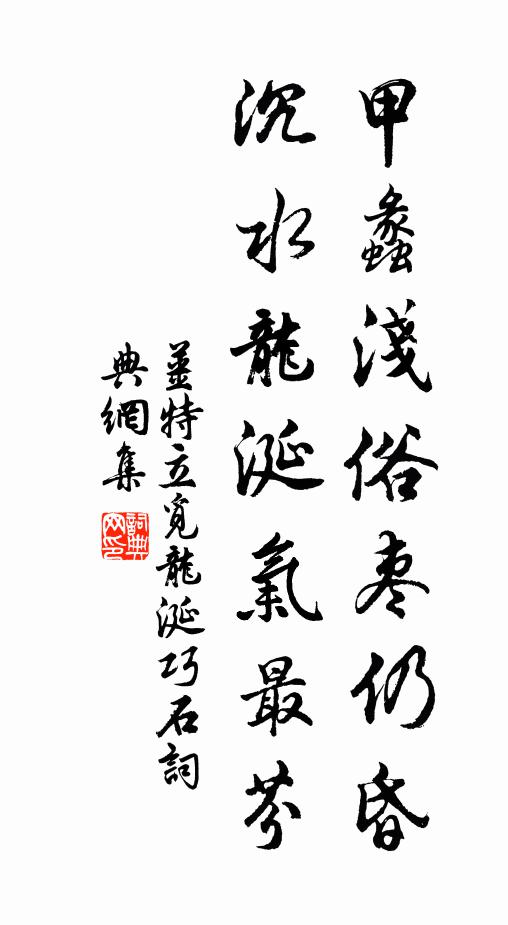 甲蠡淺俗枣仍昏
沉水龍涎氣最芬
姜特立覓龍涎巧石詞
典網集
詞典
网印